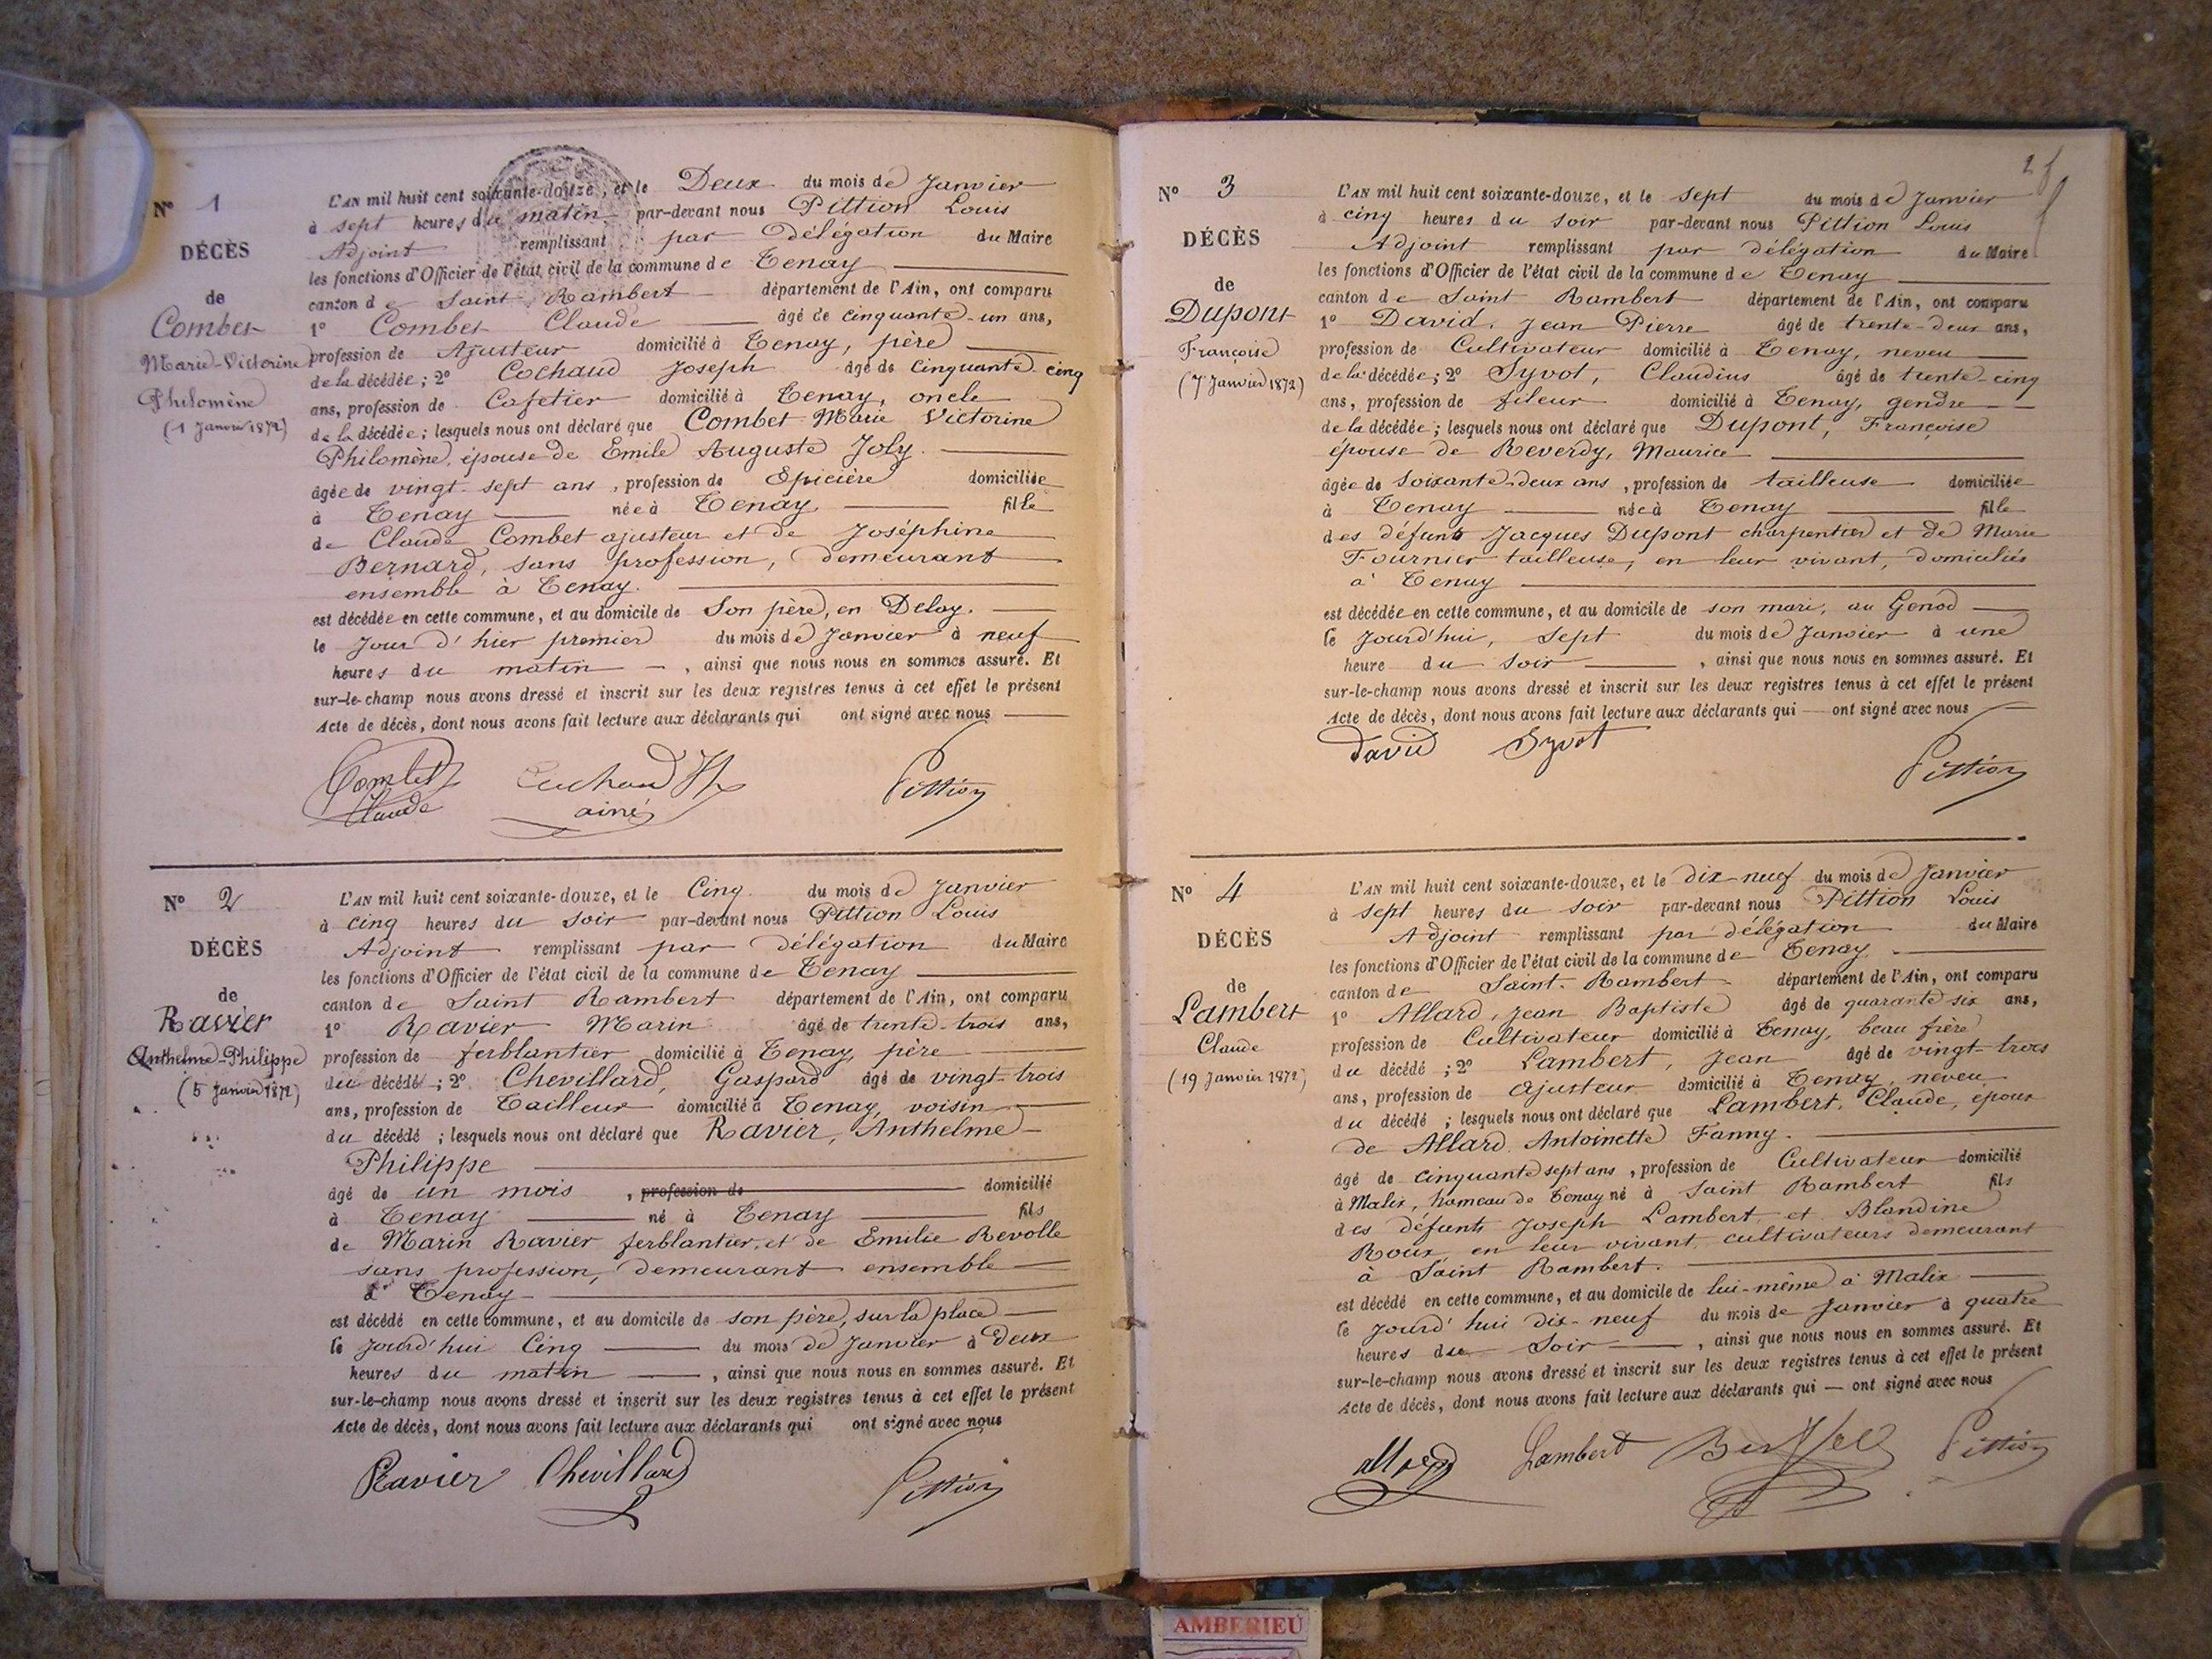 Nº 1
DÉCÈS
de
Combet
Marie-Victorine
Philomène
(1 Janvier 1872)
L'AN mil huit cent soixante-douze, et le Deux du mois de Janvier
à sept heures du matin par-devant nous Pittion Louis
Adjoint remplissant par Délégation du Maire
les fonctions d'Officier de l'état civil de la commune de Tenay
canton de Saint Rambert département de l'Ain, ont comparu
1º Combet Claude âgé de cinquante-un ans,
profession de Ajusteur domicilié à Tenay, père
de la décédée; 2º Cochaud Joseph âgé de cinquante cinq
ans, profession de Cafetier domicilié à Tenay, oncle
de la décédée; lesquels nous ont déclaré que Combet Marie Victorine
Philomène, épouse de Emile Auguste Joly.
âgée de vingt-sept ans, profession de Epicière domiciliée
à Tenay née à Tenay fille
de Claude Combet ajusteur et de Joséphine
Bernard, sans profession, demeurant
ensemble à Tenay.
est décédée en cette commune, et au domicile de Son père, en Delay.
le jour d'hier premier du mois de Janvier à neuf
heures du matin, ainsi que nous nous en sommes assuré. Et
sur-le-champ nous avons dressé et inscrit sur les deux registres tenus à cet effet le présent
Acte de décès, dont nous avons fait lecture aux déclarants qui ont signé avec nous
Combet
Claude
Cuchaud
ainé
Pittion
Nº 2
DÉCÈS
de
Ravier
Anthelme-Philippe
(5 Janvier 1872)
L'AN mil huit cent soixante-douze, et le Cinq du mois de Janvier
à cinq heures du soir par-devant nous Pittion Louis
Adjoint remplissant par délégation du Maire
les fonctions d'Officier de l'état civil de la commune de Tenay
canton de Saint Rambert département de l'Ain, ont comparu
1º Ravier Marin âgé de trente-trois ans,
profession de ferblantier domicilié à Tenay, père
du décédé; 2º Chevillard, Gaspard âgé de vingt-trois
ans, profession de Tailleur domicilié à Tenay, voisin
du décédé; lesquels nous ont déclaré que Ravier, Anthelme
Philippe
âgé de un mois, profession de domicilié
à Tenay né à Tenay fils
de Marin Ravier ferblantier, et de Emilie Revolle
sans profession, demeurant ensemble
à Tenay
est décédé en cette commune, et au domicile de son père, sur la place
le jourd'hui Cinq du mois de Janvier à Deux
heures du matin, ainsi que nous nous en sommes assuré. Et
sur-le-champ nous avons dressé et inscrit sur les deux registres tenus à cet effet le présent
Acte de décès, dont nous avons fait lecture aux déclarants qui ont signé avec nous
Ravier Chevillard Pittion
Nº 3
DÉCÈS
de
Dupont
Françoise
(7 Janvier 1872)
L'AN mil huit cent soixante-douze, et le sept du mois de Janvier
à cinq heures du soir par-devant nous Pittion Louis
Adjoint remplissant par délégation du Maire
les fonctions d'Officier de l'état civil de la commune de Tenay
canton de Saint Rambert département de l'Ain, ont comparu
1º David, Jean Pierre âgé de trente-deux ans,
profession de Cultivateur domicilié à Tenay, neveu
de la décédée; 2º Syvot, Claudius âgé de trente-cinq
ans, profession de fileur domicilié à Tenay, gendre
de la décédée; lesquels nous ont déclaré que Dupont, Françoise
épouse de Reverdy, Maurice
âgée de soixante-deux ans, profession de tailleuse domiciliée
à Tenay née à Tenay fille
des défunts Jacques Dupont charpentier et de Marie
Fournier tailleuse, en leur vivant, domiciliés
à Tenay
est décédée en cette commune, et au domicile de son mari, au Genod
le jourd'hui, sept du mois de Janvier à une
heure du soir, ainsi que nous nous en sommes assuré. Et
sur-le-champ nous avons dressé et inscrit sur les deux registres tenus à cet effet le présent
Acte de décès, dont nous avons fait lecture aux déclarants qui ont signé avec nous
David Syvot Pittion
Nº 4
DÉCÈS
de
Lambert
Claude
(19 Janvier 1872)
L'AN mil huit cent soixante-douze, et le dix-neuf du mois de Janvier
à sept heures du soir par-devant nous Pittion Louis
Adjoint remplissant par délégation du Maire
les fonctions d'Officier de l'état civil de la commune de Tenay
canton de Saint-Rambert département de l'Ain, ont comparu
1º Allard, Jean Baptiste âgé de quarante six ans,
profession de Cultivateur domicilié à Tenay, beau frère
du décédé; 2º Lambert, Jean âgé de vingt-trois
ans, profession de Ajusteur domicilié à Tenay, neveu
du décédé; lesquels nous ont déclaré que Lambert, Claude, époux
de Allard Antoinette Fanny.
âgé de cinquante sept ans, profession de Cultivateur domicilié
à Malix, hameau de Tenay né à Saint Rambert fils
des défunts Joseph Lambert et Blandine
Roux en leur vivant cultivateurs demeurant
à Saint Rambert.
est décédé en cette commune, et au domicile de lui-même à Malix
le jourd'hui dix-neuf du mois de Janvier à quatre
heures du Soir, ainsi que nous nous en sommes assuré. Et
sur-le-champ nous avons dressé et inscrit sur les deux registres tenus à cet effet le présent
Acte de décès, dont nous avons fait lecture aux déclarants qui — ont signé avec nous
allard Lambert Pittion
AMBERIEU